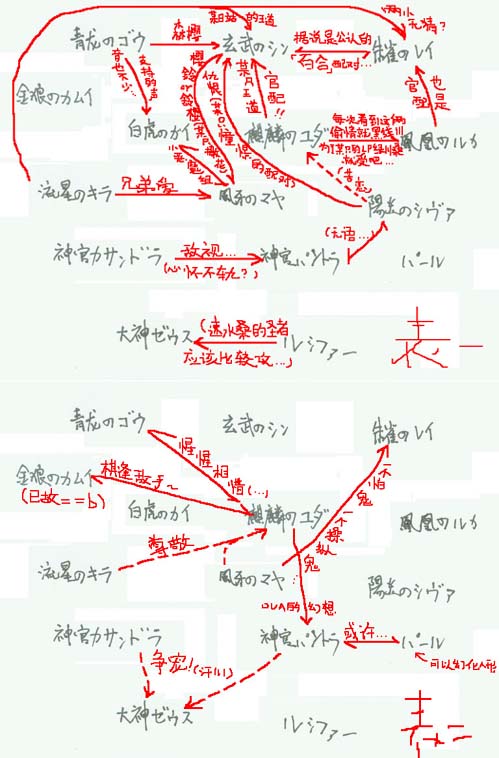 某站的王道
两小
无猜?
青龙のゴウ
森樱
玄武のシン
据说是公认的
“百合”配对…
朱雀のレイ
支持的声
音也不少…
金狼のカムイ
樱铃
仇恨
某只王道
官配!!
官配
也是
白虎のカイ
麒麟のユダ
每次看到这俩
偷情就黑线|||
鳳凰のルカ
小恶魔组
(单恋)
流星のキラ
兄弟爱
風系のマヤ
陽炎のシヴァ
神官カサンドラ
敌视…
(心怀不轨?)
神官パンドラ
(无语…)
パール
大神ゼウス
(速水桑的圣者
应该比较攻…)
ルシファー
表一
青龙のゴウ
玄武のシン
朱雀のレイ
惺惺相惜(…)
金狼のカムイ
(已故==b)
棋逢敌手~
白虎のカイ
麒麟のユダ
鳳凰のルカ
一个怕鬼
一个操纵鬼
流星のキラ
尊敬
風系のマヤ
陽炎のシヴァ
OVA的幻想
神官カサンドラ
神官パンドラ
或许…
パール
可以幻化人形
争宠!(汗|||)
大神ゼウス
ルシファー
表二